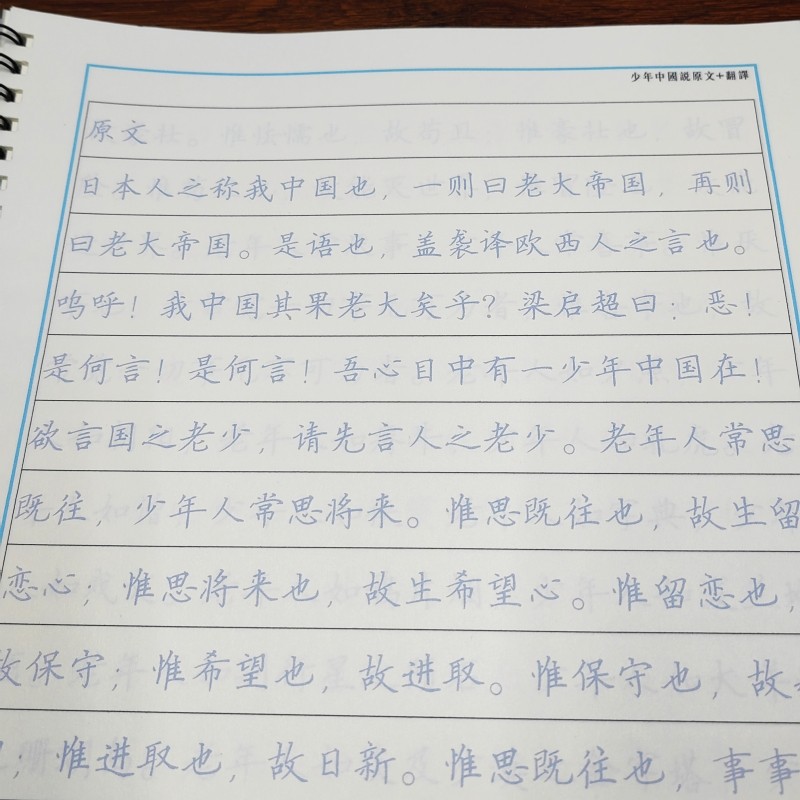 少年中國説原文+翻譯
原文
日本人之称我中国也，一则曰老大帝国，再则
曰老大帝国。是语也，盖袭译欧西人之言也。
呜呼！我中国其果老大矣乎？梁启超曰：恶！
是何言！是何言！吾心目中有一少年中国在！
欲言国之老少，请先言人之老少。老年人常思
既往，少年人常思将来。惟思既往也，故生留
恋心，惟思将来也，故生希望心。惟留恋也，
故保守，惟希望也，故进取。惟保守也，故
，惟进取也，故日新。惟思既往也，事事